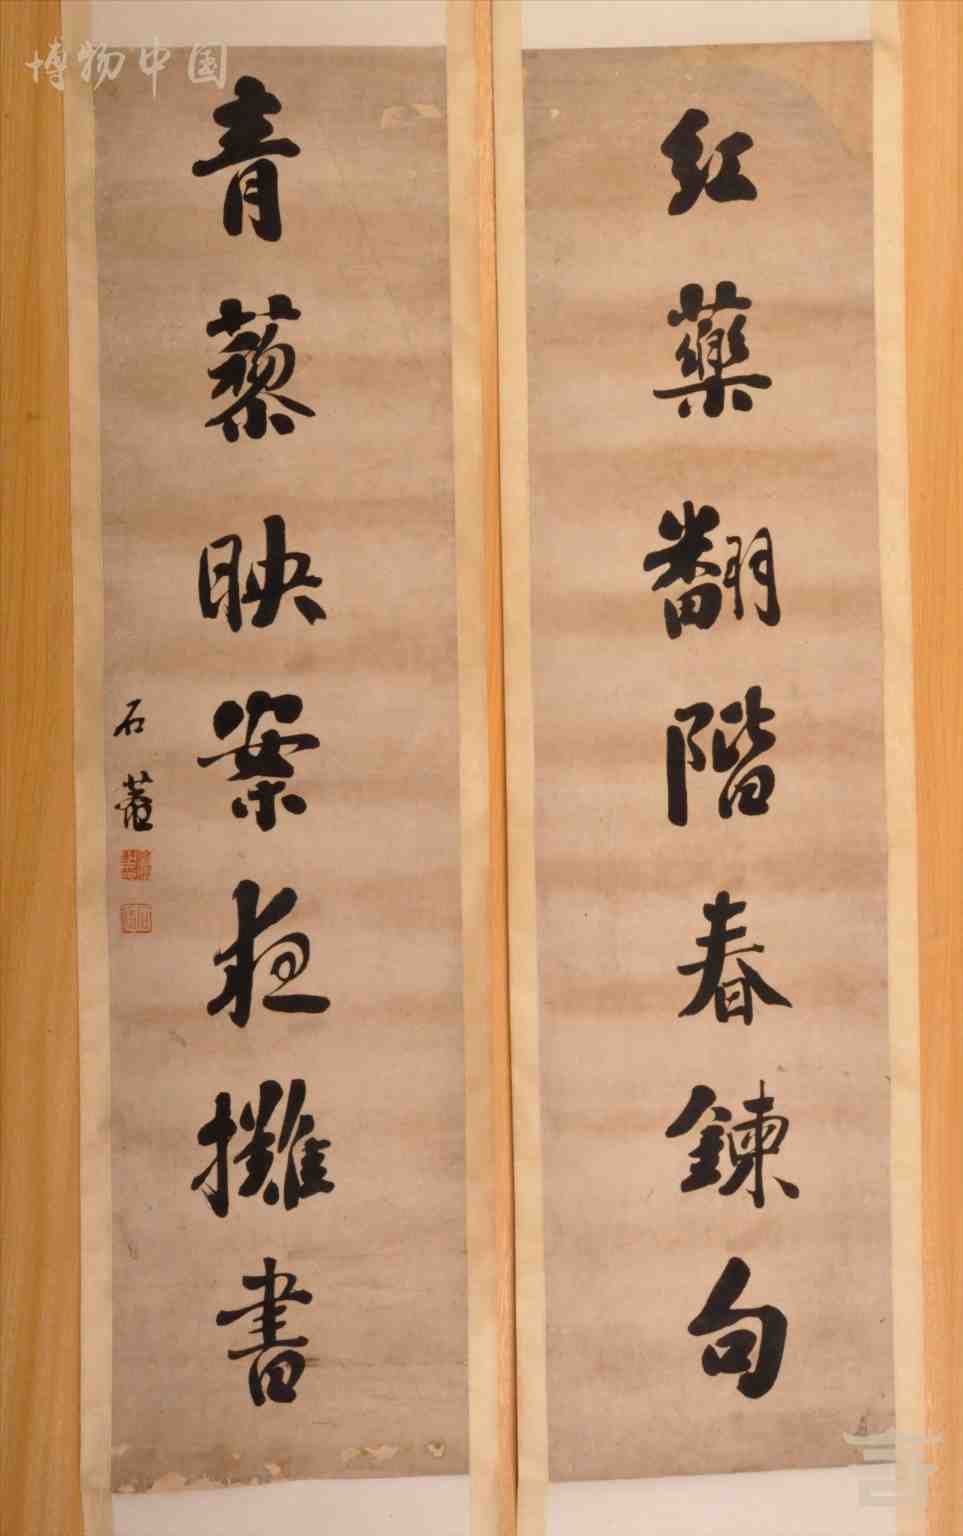 红藥翻階春鍊句
青藜映案夜攤書
石菴
博物中国